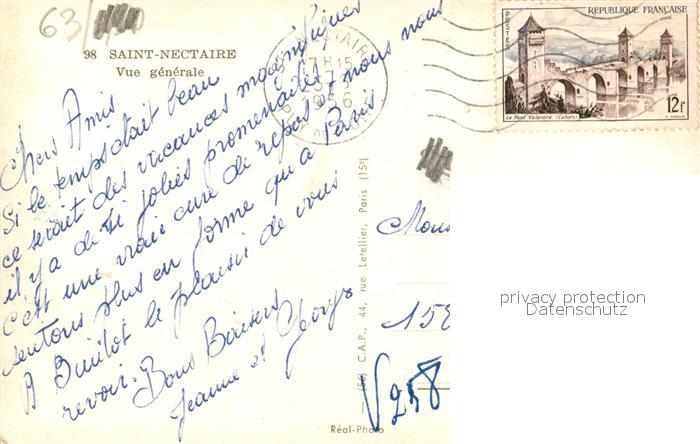 63/
98 SAINT-NECTAIRE
Vue générale
Chers Amis
Si le temps était beau
ce serait des vacances magnifiques
il y a de si jolies promenades,
C'est une vraie cure de repos et nous nous
sentons plus en forme qu'à Paris.
A Bientot le plaisir de vous
revoir. Bons Baisers
Jeanne et Georges
17H15
1956
POSTES
REPUBLIQUE FRANÇAISE
Le Pont Valentré (Cahors)
12F
C.A.P., 44, rue Letellier, Paris (15e)
Réal-Photo
Mons
15
V258
privacy protection
Datenschutz